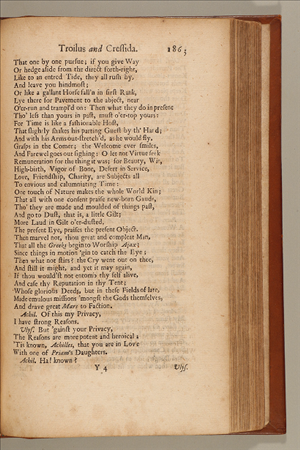 Troilus and Cressida. 1865
That one by one pursue; if you give Way
Or hedge aside from the direct forth-right,
Like to an entred Tide, they all rush by,
And leave you hindmost;
Or like a gallant Horse fall'n in first Rank,
Lye there for Pavement to the abject, near
O'er-run and trampl'd on: Then what they do in present
Tho' less than yours in past, must o'er-top yours:
For Time is like a fashionable Host,
That slightly shakes his parting Guest by th' Hand;
And with his Arms out-stretch'd, as he would fly,
Grasps in the Comer; the Welcome ever smiles,
And Farewel goes out sighing: O let not Virtue seek
Remuneration for the thing it was; for Beauty, Wit,
High-birth, Vigor of Bone, Desert in Service,
Love, Friendship, Charity, are Subjects all
To envious and calumniating Time:
One touch of Nature makes the whole World Kin;
That all with one consent praise new-born Gauds,
Tho' they are made and moulded of things past,
And go to Dust, that is, a little Gilt;
More Laud in Gilt o'er-dusted.
The present Eye, praises the present Object.
Then marvel not, thou great and compleat Man,
That all the Greeks begin to Worship Ajax;
Since things in motion 'gin to catch the Eye;
Then what not stirs: the Cry went out on thee,
And still it might, and yet it may again,
If thou would'st not entomb thy self alive,
And case thy Reputation in thy Tent;
Whose glorious Deeds, but in these Fields of late,
Made emulous missions 'mongst the Gods themselves,
And drave great Mars to Faction.
Achil. Of this my Privacy,
I have strong Reasons.
Ulys. But 'gainst your Privacy,
The Reasons are more potent and heroical:
'Tis known, Achilles, that you are in Love
With one of Priam's Daughters.
Achil. Ha! known?
Y 4 Ulys.